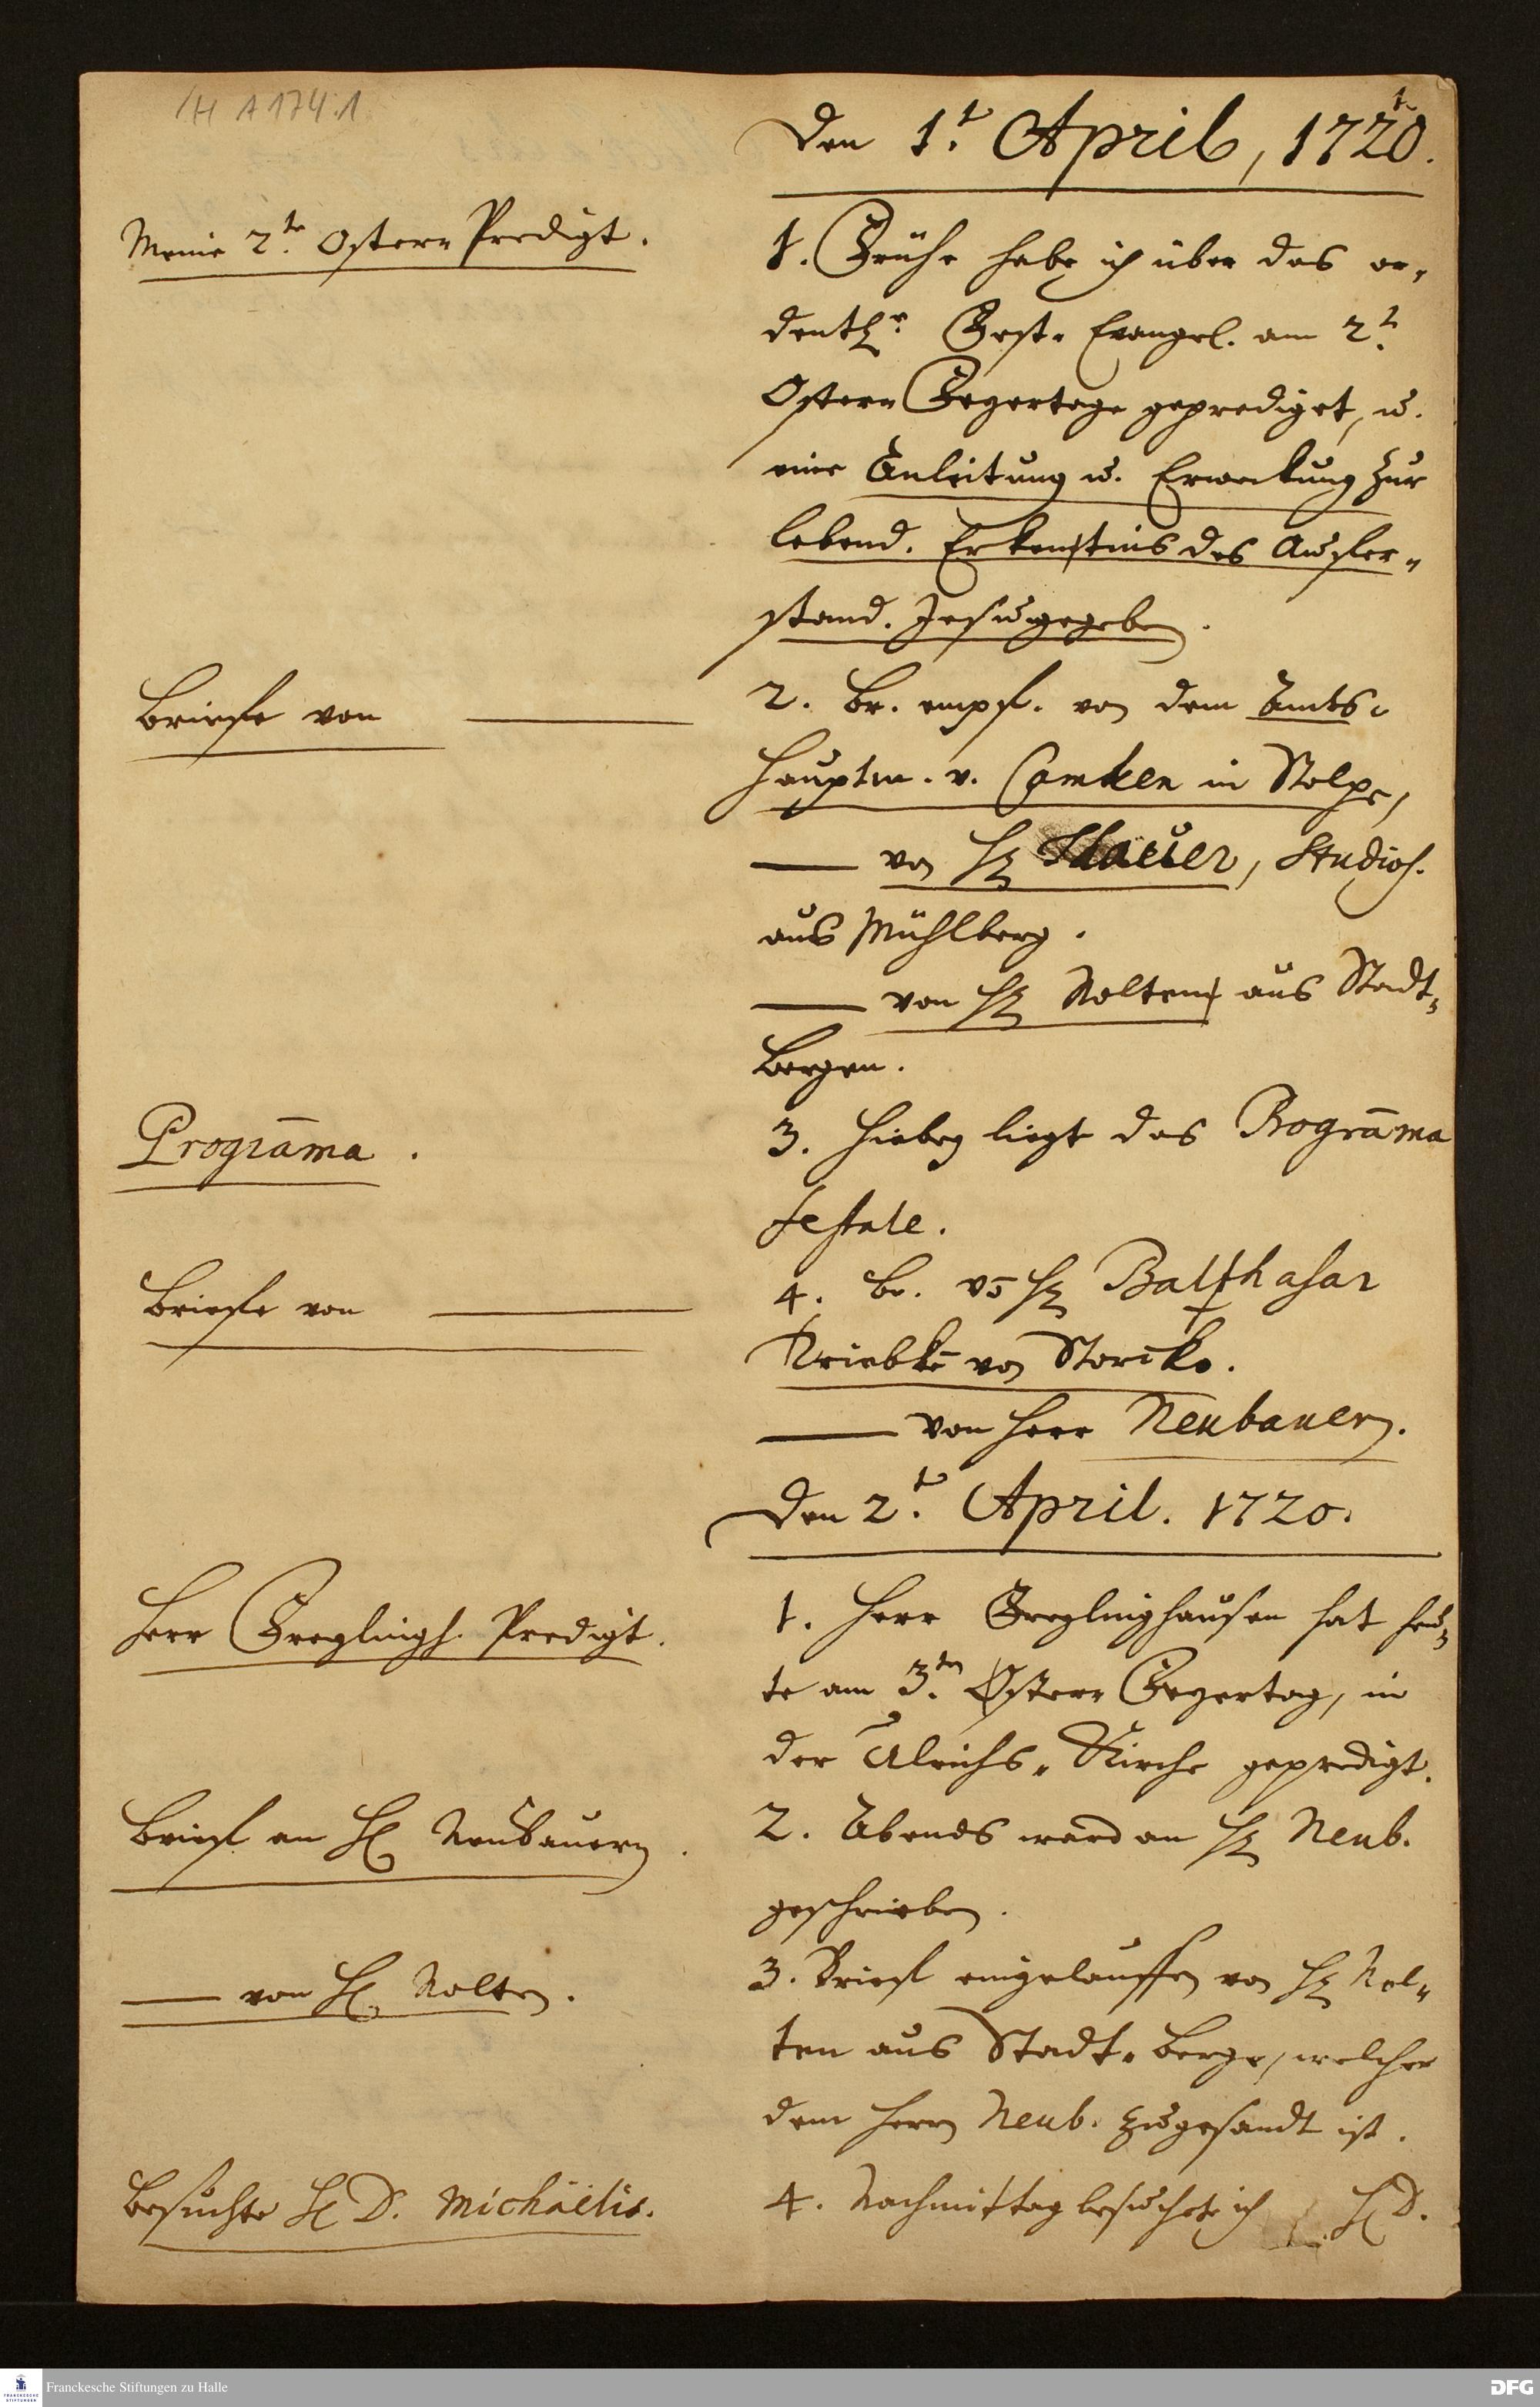 /H A 174:1
Den 1.t April, 1720.
Meine 2.te Oster-Predigt.
1. Frühe habe ich über das or-
dentl. Fest-Evangel. am 2.t
Oster-Feyertage geprediget, u.
eine Anleitung u. Erweckung zur
lebend. Erkentnis des Aufer-
stand. Jesu gegeben.
Briefe von
2. Br. empf. von dem Amts-
Hauptm. v. Camken in Stolpe,
von H. , Studios.
aus Mühlberg.
von H. Nolten aus Stadt-
bergen.
Programa.
3. Hiebey liegt das Programa
festale.
Briefe von
4. Br. vo H. Balthasar
Kriebke von Storcko.
von Herr Neubauern.
Den 2.t April. 1720.
Herr Freylingh. Predigt.
1. Herr Freylinghausen hat heu-
te am 3.ten Oster-Feyertag, in
der Ulrichs-Kirche gepredigt.
Brief an H. Neubauern.
2. Abends ward an H. Neub.
geschrieben.
von H. Nolten.
3. Brief eingelauffen von H. Nol-
ten aus Stadt-berge, welcher
dem Herrn Neub. zugesandt ist.
Besuchte H. D. Michäelis.
4. Nachmittag besuchete ich H. D.
FRANCKESCHE STIFTUNGEN
Franckesche Stiftungen zu Halle
DFG